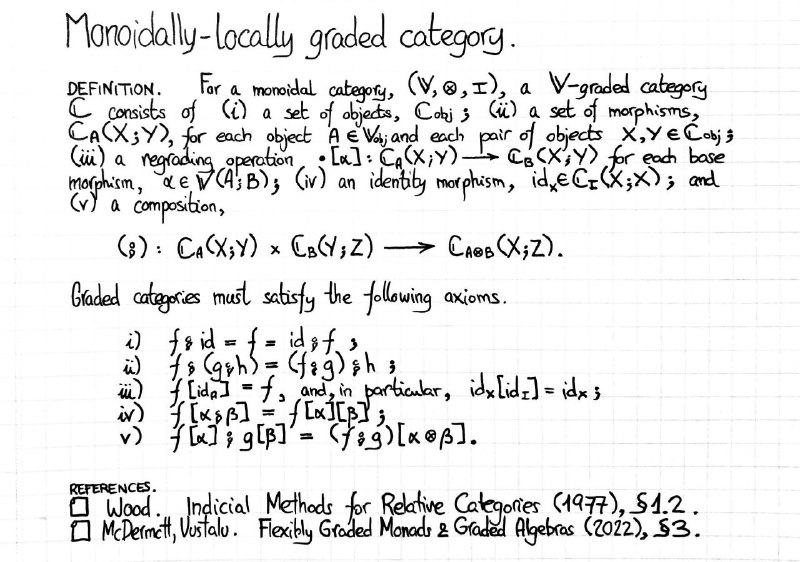 Monoidally-locally graded category.
DEFINITION. For a monoidal category, (𝕍, ⊗, I), a 𝕍-graded category
ℂ consists of (i) a set of objects, ℂobj ; (ii) a set of morphisms,
ℂA(X;Y), for each object A ∈ 𝕍obj and each pair of objects X,Y ∈ ℂobj ;
(iii) a regrading operation •[α] : ℂA(X;Y) ⟶ ℂB(X;Y) for each base
morphism, α ∈ 𝕍(A;B) ; (iv) an identity morphism, idx ∈ ℂI(X;X) ; and
(v) a composition,
(⨾) : ℂA(X;Y) × ℂB(Y;Z) ⟶ ℂA⊗B(X;Z).
Graded categories must satisfy the following axioms.
i) f ⨾ id = f = id ⨾ f ;
ii) f ⨾ (g⨾h) = (f⨾g) ⨾ h ;
iii) f[idA] = f, and, in particular, idx[idI] = idx ;
iv) f[α⨾β] = f[α][β] ;
v) f[α] ⨾ g[β] = (f⨾g)[α ⊗ β].
REFERENCES.
□ Wood. Indicial Methods for Relative Categories (1977), §1.2.
□ McDermott, Uustalu. Flexibly Graded Monads & Graded Algebras (2022), §3.